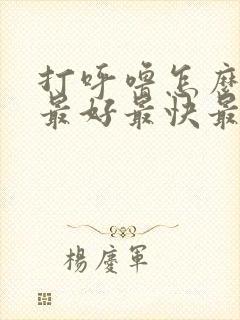 打呼噜怎麽
最好最快最
楊慶軍